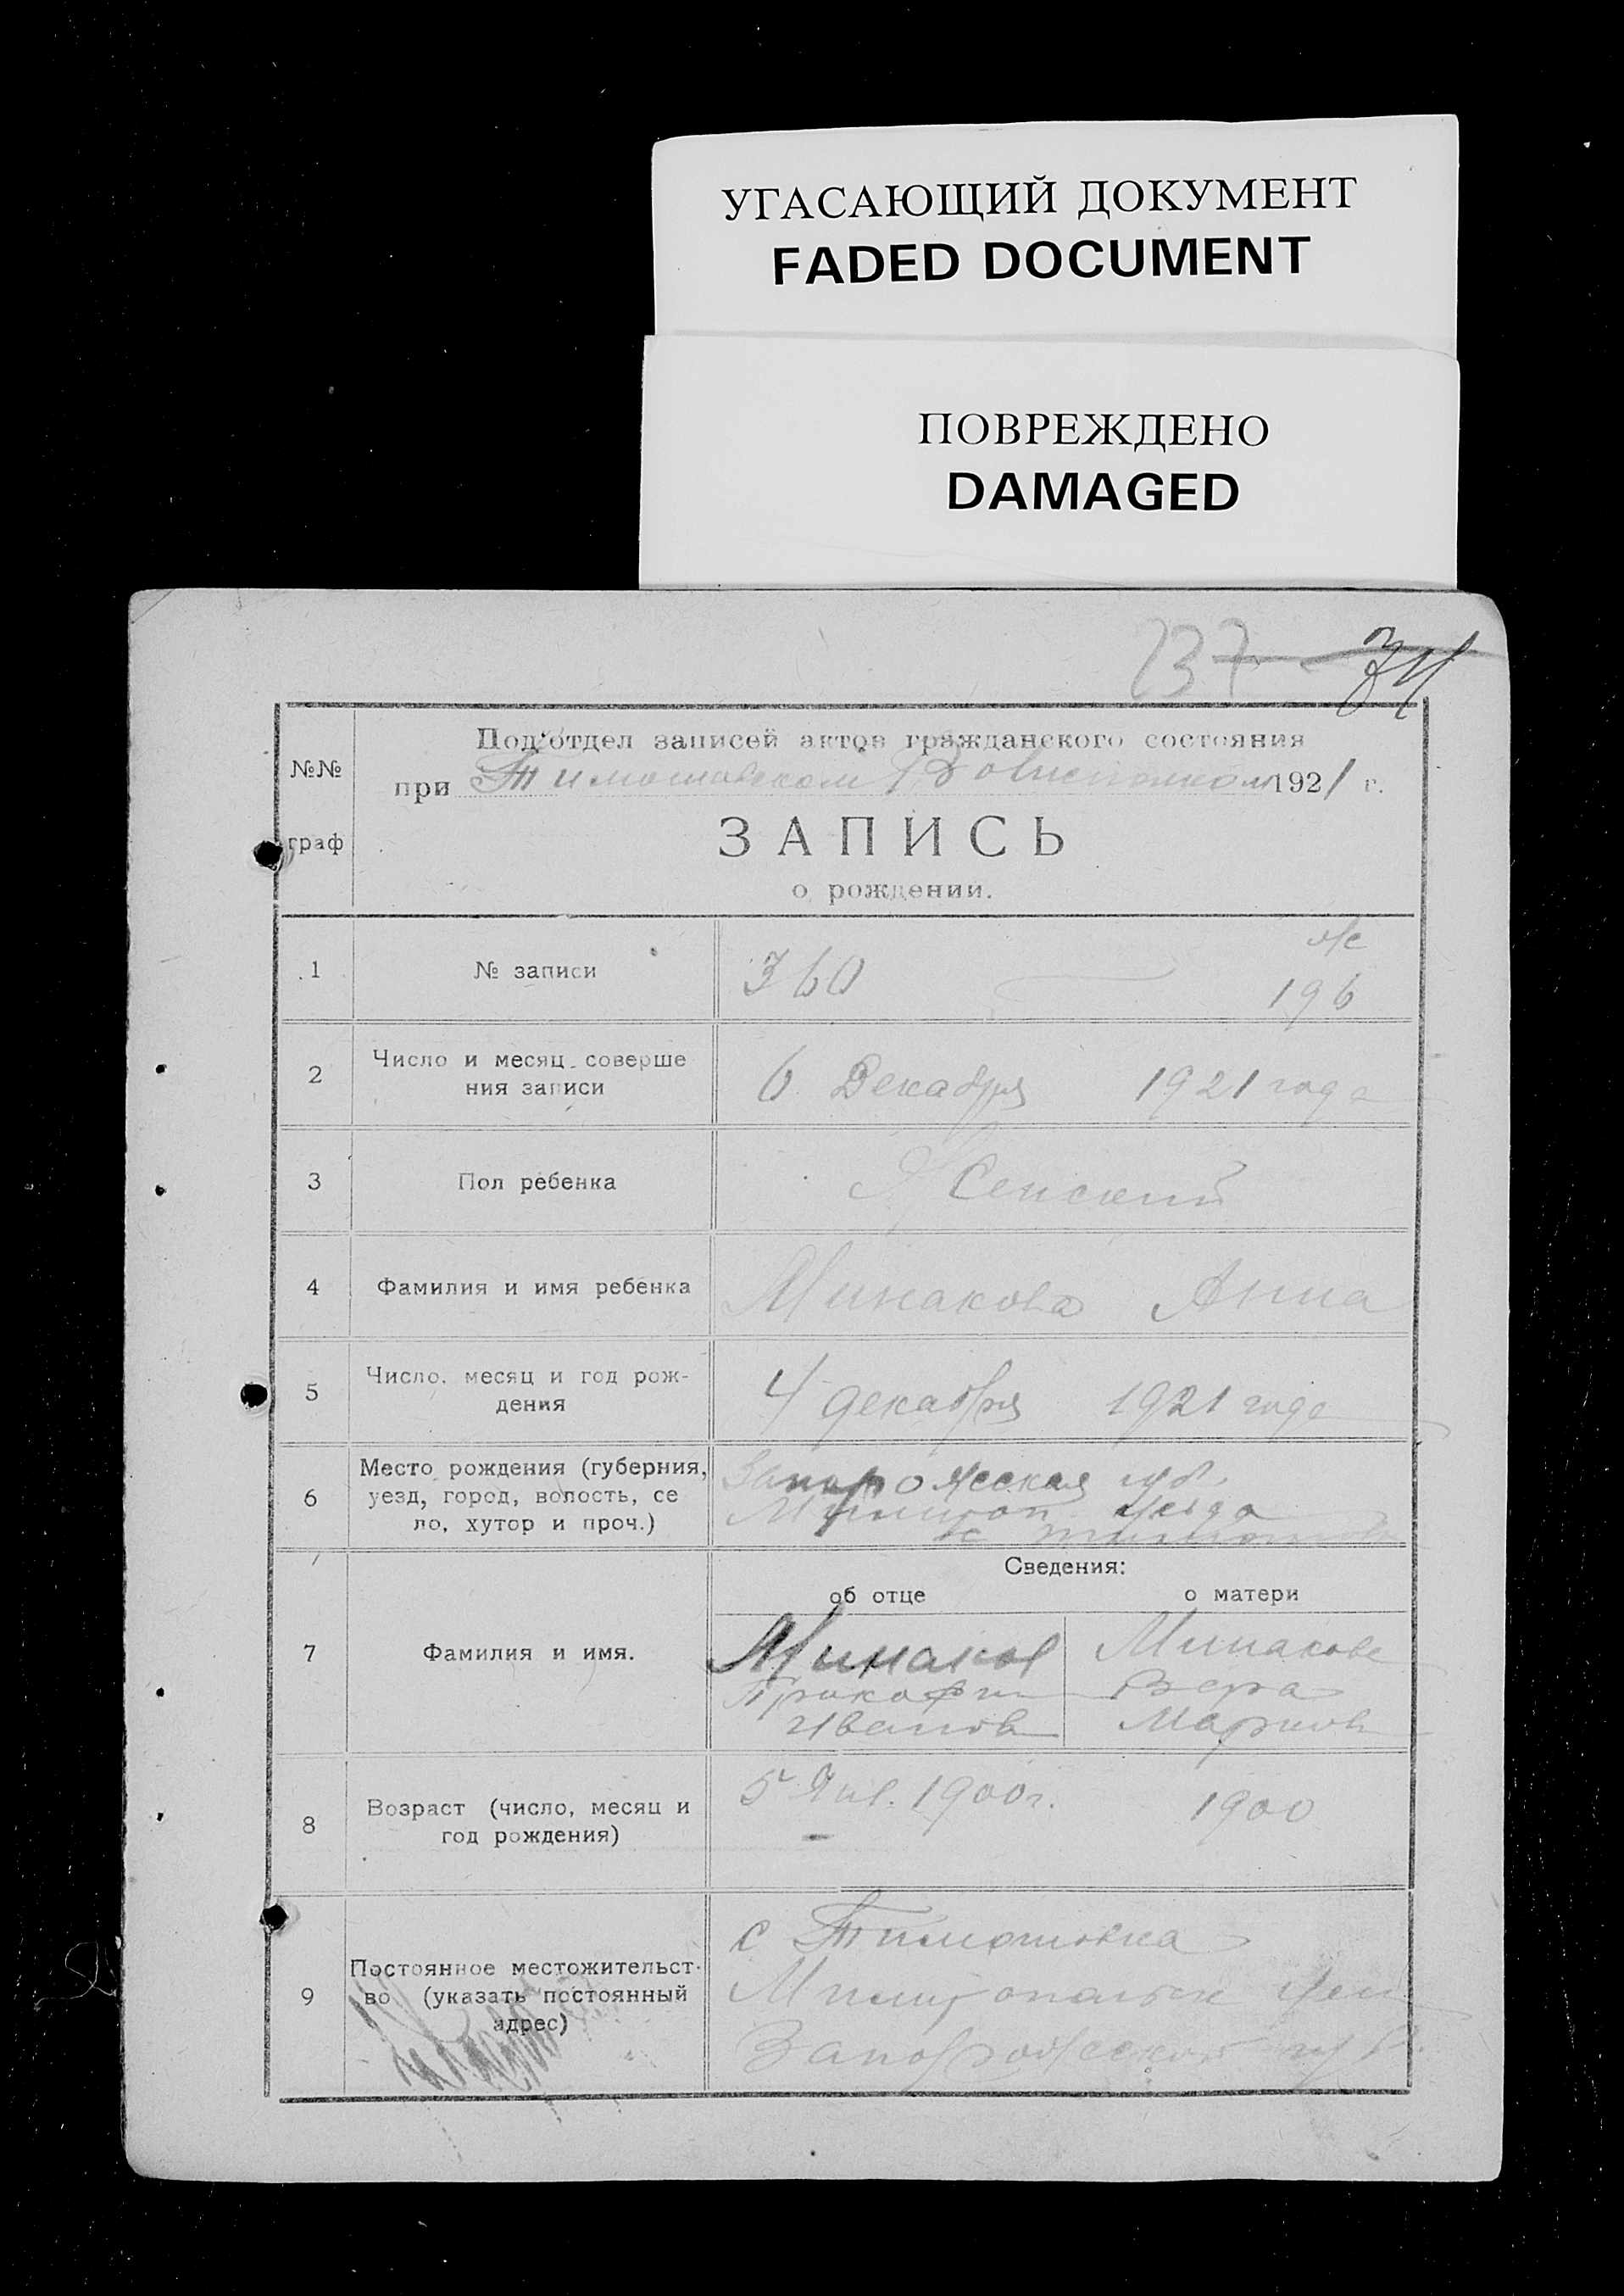 УГАСАЮЩИЙ ДОКУМЕНТ
FADED DOCUMENT
ПОВРЕЖДЕНО
DAMAGED
237
№№
граф
Под'отдел записей актов гражданского состояния
при Тимошовском 1921 г.
ЗАПИСЬ
о рождении.
1 № записи 360
196
2 Число и месяц соверше
ния записи
6 Декабря 1921 года
3 Пол ребенка Женский
4 Фамилия и имя ребенка Минакова Анна
5 Число, месяц и год рож-
дения
4 декабря 1921 года
6 Место рождения (губерния,
уезд, город, волость, се
ло, хутор и проч.)
Запорожская губ.
уезда
с
Сведения:
об отце о матери
7 Фамилия и имя.
Минаков Минакова
Прокофий Вера
Иванов Марков
8 Возраст (число, месяц и
год рождения)
5 Янв. 1900г. 1900
9 Постоянное местожительст-
во (указать постоянный
адрес)
с Тимошовка
Запорожской губ.